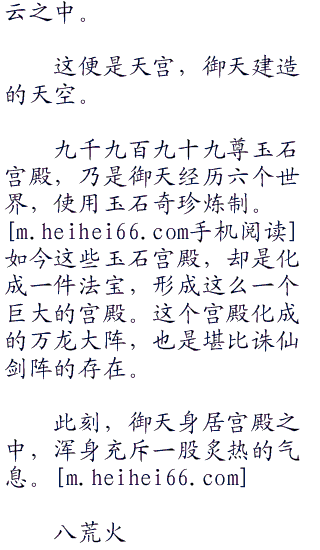 云之中。
这便是天宫，御天建造
的天空。
九千九百九十九尊玉石
宫殿，乃是御天经历六个世
界，使用玉石奇珍炼制。
[m.heihei66.com手机阅读]
如今这些玉石宫殿，却是化
成一件法宝，形成这么一个
巨大的宫殿。这个宫殿化成
的万龙大阵，也是堪比诛仙
剑阵的存在。
此刻，御天身居宫殿之
中，浑身充斥一股炙热的气
息。[m.heihei66.com]
八荒火